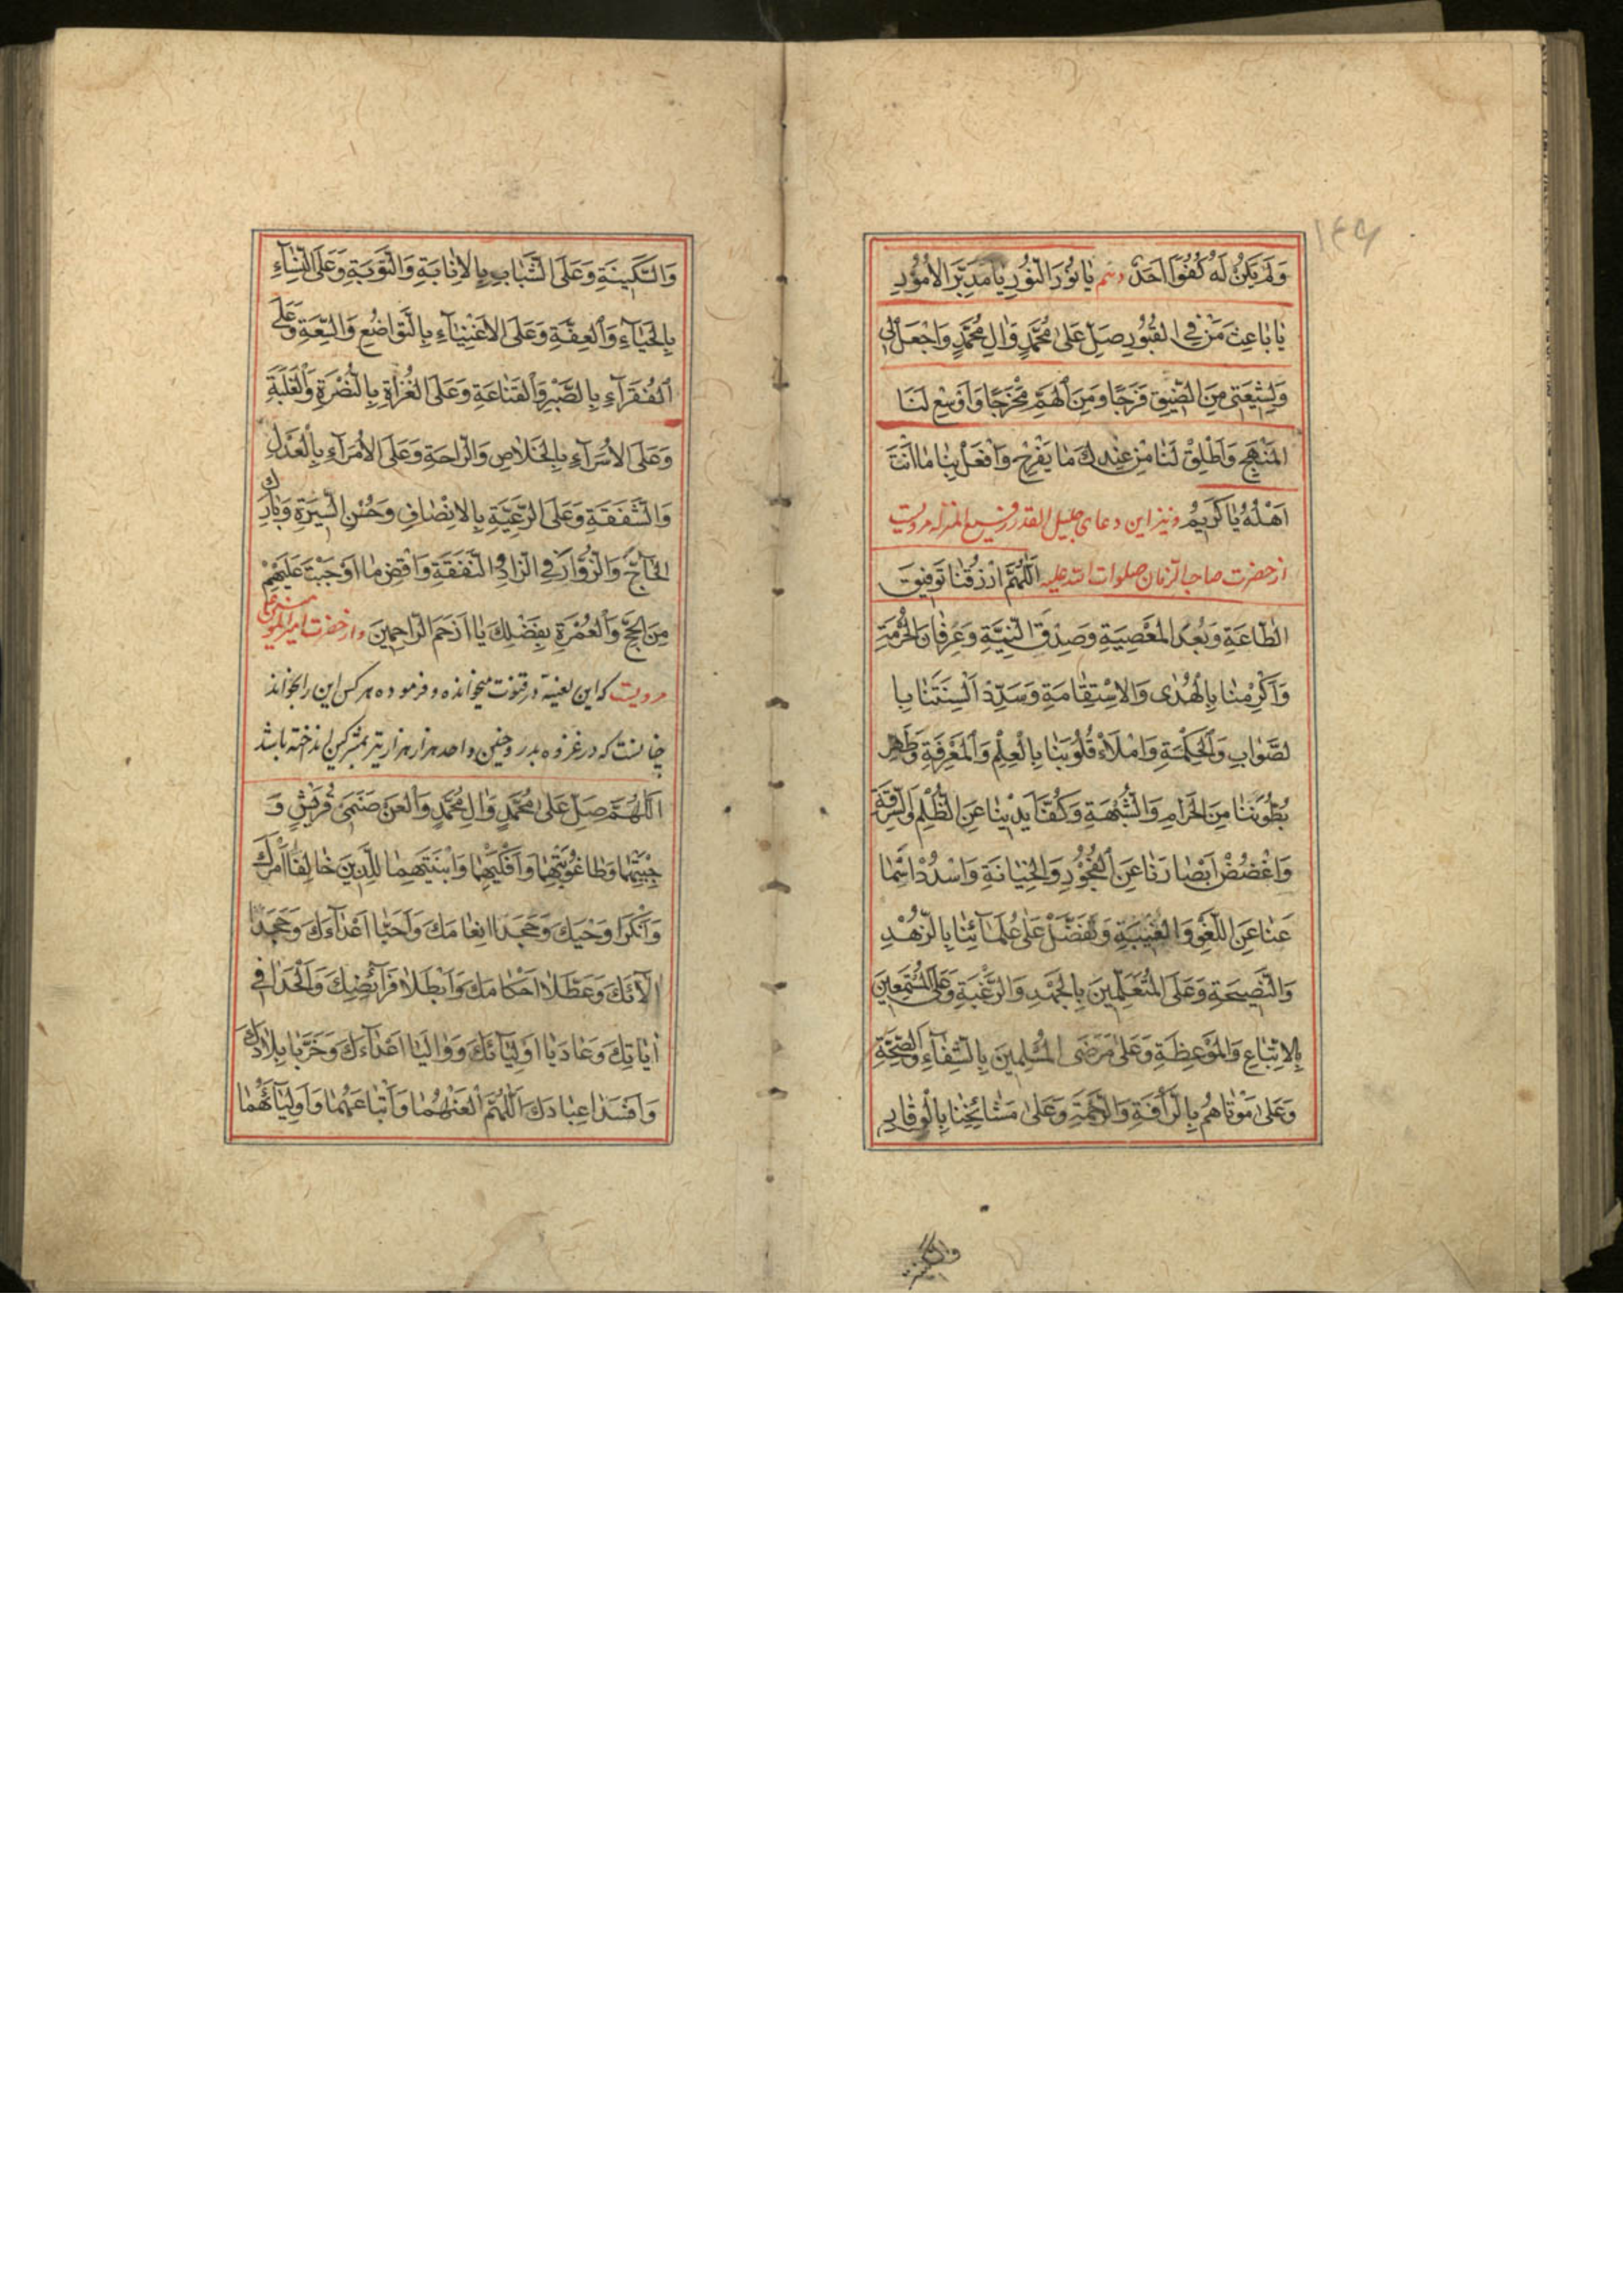 ۱۴۹
وَلَمْ يَكُنْ لَهُ كُفُوًا اَحَدٌ دهم يٰا نُورَ النُّورِ يٰا مُدَبِّرَ الْاُمُورِ
يٰا بٰاعِثَ مَنْ فِي الْقُبُورِ صَلِّ عَلىٰ مُحَمَّدٍ وَاٰلِ مُحَمَّدٍ وَاجْعَلْ لِي
وَلِشِيعَتِي مِنَ الضِّيقِ فَرَجًا وَمِنَ الْهَمِّ مَخْرَجًا وَاَوْسِعْ لَنَا
الْمَنْهَجَ وَاَطْلِقْ لَنٰا مِنْ عِنْدِكَ مٰا يُفَرِّجُ وَافْعَلْ بِنٰا مٰا اَنْتَ
اَهْلُهُ يٰا كَرِيمُ ونیز این دعای جلیل القدر رفیع المنزله مرویست
از حضرت صاحب الزمان صلوات الله علیه اَللّٰهُمَّ ارْزُقْنٰا تَوْفِيقَ
الطّٰاعَةِ وَبُعْدَ الْمَعْصِيَةِ وَصِدْقَ النِّيَّةِ وَعِرْفٰانَ الْحُرْمَةِ
وَاَكْرِمْنٰا بِالْهُدٰى وَالْاِسْتِقٰامَةِ وَسَدِّدْ اَلْسِنَتَنٰا بِا
لصَّوٰابِ وَالْحِكْمَةِ وَامْلَاْ قُلُوبَنٰا بِالْعِلْمِ وَالْمَعْرِفَةِ وَطَهِّرْ
بُطُونَنٰا مِنَ الْحَرٰامِ وَالشُّبْهَةِ وَكُفَّ اَيْدِيَنٰا عَنِ الظُّلْمِ وَالسَّرِقَةِ
وَاغْضُضْ اَبْصٰارَنٰا عَنِ الْفُجُورِ وَالْخِيٰانَةِ وَاسْدُدْ اَسْمٰا
عَنٰا عَنِ اللَّغْوِ وَالْغِيبَةِ وَتَفَضَّلْ عَلىٰ عُلَمٰائِنٰا بِالزُّهْدِ
وَالنَّصِيحَةِ وَعَلَى الْمُتَعَلِّمِينَ بِالْجَهْدِ وَالرَّغْبَةِ وَعَلَى الْمُسْتَمِعِينَ
بِالْاِتِّبٰاعِ وَالْمَوْعِظَةِ وَعَلىٰ مَرْضَى الْمُسْلِمِينَ بِالشِّفٰاءِ وَالصِّحَّةِ
وَعَلىٰ مَوْتٰاهُمْ بِالرَّأْفَةِ وَالرَّحْمَةِ وَعَلىٰ مَشٰائِخِنٰا بِالْوَقٰارِ
وَالسَّكِينَةِ وَعَلَى الشَّبٰابِ بِالْاِنٰابَةِ وَالتَّوْبَةِ وَعَلَى النِّسٰاءِ
بِالْحَيٰاءِ وَالْعِفَّةِ وَعَلَى الْاَغْنِيٰاءِ بِالتَّوٰاضُعِ وَالسَّعَةِ وَعَلَى
الْفُقَرٰاءِ بِالصَّبْرِ وَالْقَنٰاعَةِ وَعَلَى الْغُزٰاةِ بِالنُّصْرَةِ وَالْغَلَبَةِ
وَعَلَى الْاُسَرٰاءِ بِالْخَلٰاصِ وَالرّٰاحَةِ وَعَلَى الْاُمَرٰاءِ بِالْعَدْلِ
وَالشَّفَقَةِ وَعَلَى الرَّعِيَّةِ بِالْاِنْصٰافِ وَحُسْنِ السِّيرَةِ وَبٰارِكْ
الْحٰاجَّ وَالزُّوّٰارَ فِي الزّٰادِ وَالنَّفَقَةِ وَاقْضِ مٰا اَوْجَبْتَ عَلَيْهِمْ
مِنَ الْحَجِّ وَالْعُمْرَةِ بِفَضْلِكَ يٰا اَرْحَمَ الرّٰاحِمِينَ واز حضرت امیرالمؤمنین علی
مرویست که این لعینه در قنوت میخوانده و فرموده هر کس این را بخواند
چنانست که در غزوه بدر و حنین و احد هزار هزار تیر بمشرکین انداخته باشد
اَللّٰهُمَّ صَلِّ عَلىٰ مُحَمَّدٍ وَاٰلِ مُحَمَّدٍ وَالْعَنْ صَنَمَيْ قُرَيْشٍ وَ
جِبْتَيْهِمٰا وَطٰاغُوتَيْهِمٰا وَاَفْكَيْهِمٰا وَابْنَتَيْهِمَا الَّذِينَ خٰالَفٰا اَمْرَكَ
وَاَنْكَرٰا وَحْيَكَ وَجَحَدٰا اِنْعٰامَكَ وَاَحَبّٰا اَعْدٰاءَكَ وَجَحَدٰا
اٰلٰائَكَ وَعَطَّلٰا اَحْكٰامَكَ وَاَبْطَلٰا فَرٰائِضَكَ وَاَلْحَدٰا فِي
اٰيٰاتِكَ وَعٰادَيٰا اَوْلِيٰائَكَ وَوٰالَيٰا اَعْدٰاءَكَ وَخَرَّبٰا بِلٰادَكَ
وَاَفْسَدٰا عِبٰادَكَ اَللّٰهُمَّ الْعَنْهُمٰا وَاَتْبٰاعَهُمٰا وَاَوْلِيٰائَهُمٰا